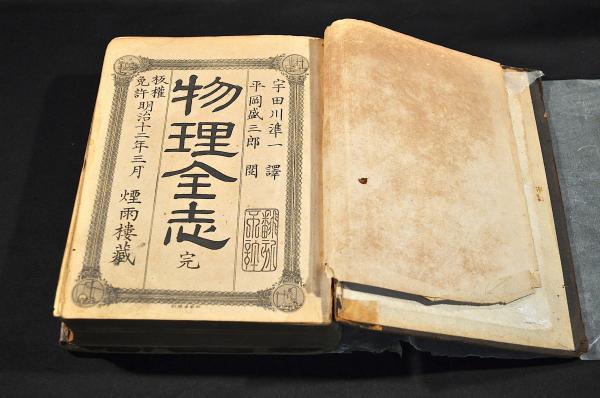 宇田川準一 譯
平岡盛三郎 閲
物理全志 完
板權免許 明治十二年三月 煙雨樓藏
翻刻不許